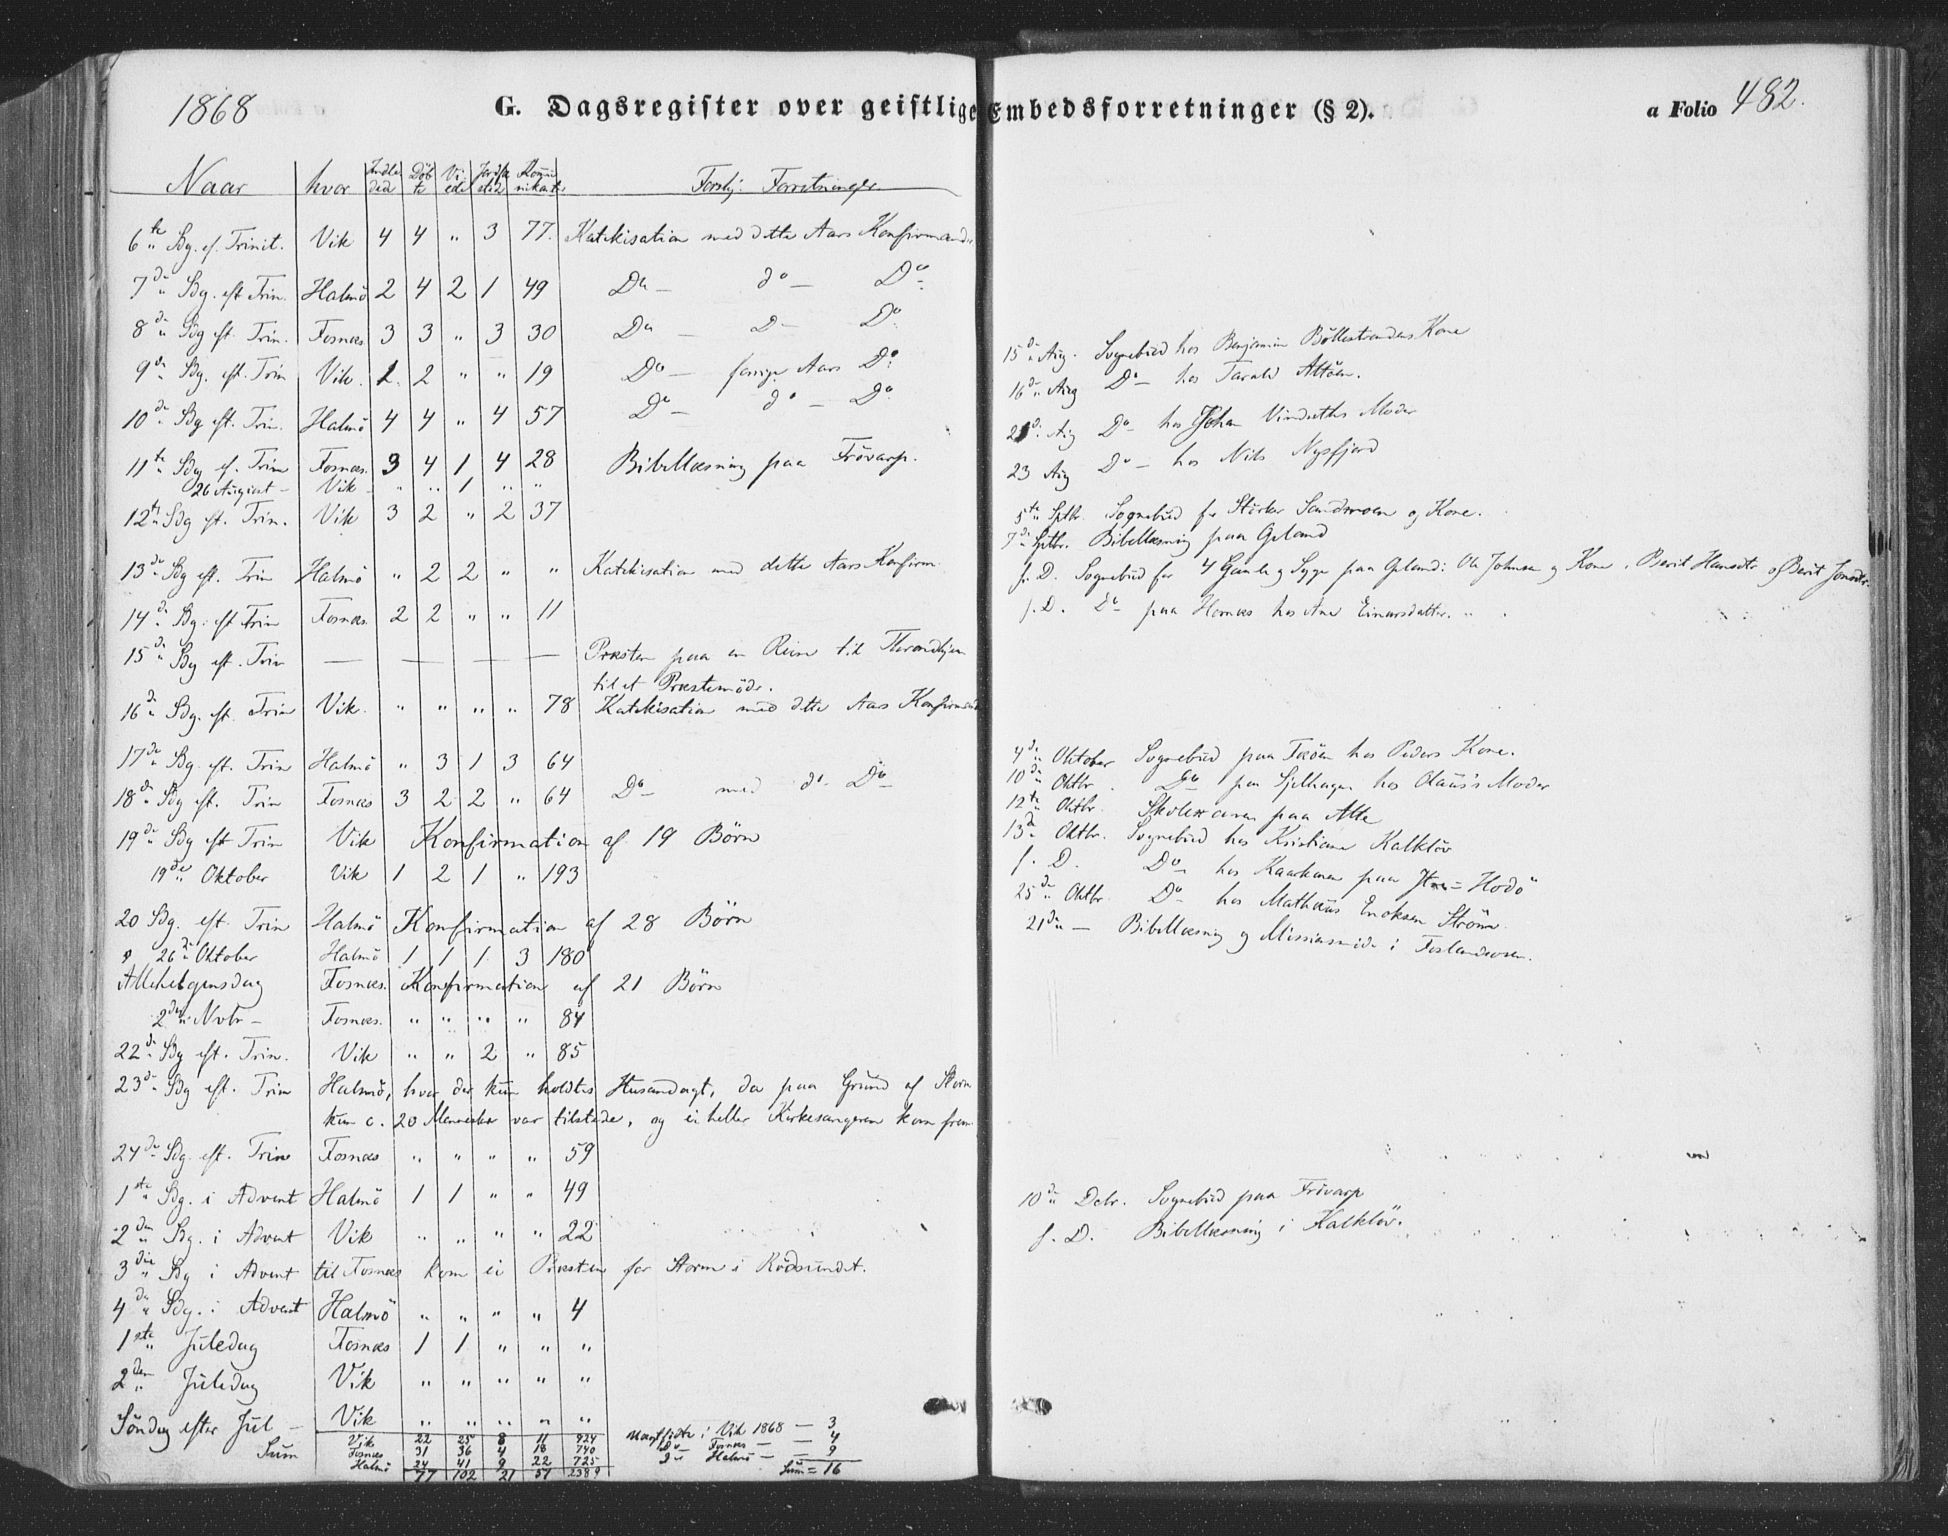 1868 G. Dagsregister over geistlige Embedsforretninger (§ 2). a Folio 482.
Naar hvor Indledede Döbte Viede Jordfæstede Kommunikanter Forskj. Forretninger
6te Sdg. ef. Trinit. Vik 4 4 " 3 77. Katekisation med dette Aars Konfirmand
7de Sdg. eft Trin. Halmö 2 4 2 1 49 Do — do — Do
8de Sdg eft. Trin. Fosnæs 3 3 " 3 30 Do — D — Do
9de Sdg. eft. Trin Vik. 2 " " 19 Do — forrige Aars Do
10de Sdg eft. Trin. Halmö 4 4 " 4 57 Do — do — Do
11te Sdg ef. Trin Fosnæs. 3 4 1 4 28 Bibellæsning paa Frövarp.
26 August — Vik — " " 1 " "
12te Sdg eft. Trin. Vik 3 2 " 2 37
13de Sdg eft. Trin Halmö " 2 2 " " Katekisation med dette Aars Konfirm.
14de Sdg. eft Trin Fosnæs. 2 2 " " 11
15de Sdg eft. Trin — — — — Præsten paa en Reise til Throndhjem
til et Præstemöde.
16de Sdg. eft. Trin Vik. " " " " 78 Katekisation med dette Aars Konfirmand
17de Sdg eft. Trin Halmö " 3 1 3 64
18de Sdg eft. Trin Fosnæs 3 2 2 " 64 Do — med do Do
19de Sdg eft Trin Vik Konfirmation af 19 Börn
19de Oktober Vik 1 2 1 " 193
20 Sdg. eft. Trin Halmö Konfirmation af 28 Börn
26de Oktober Halmö 1 1 1 3 180
Allehelgensdag Fosnæs. Konfirmation af 21 Börn
2den Novbr — Fosnæs. " " " " 84
22de Sdg eft. Trin. Vik " " 2 " 85
23de Sdg eft. Trin Halmö, hvor der kun holdtes Husandagt, da paa Grund af Storm
kun c. 20 Mennesker var tilstede, og ei heller Kirkesangeren kom frem
24de Sdg. eft. Trin Fosnæs " " " " 59
1ste Sdg. i Advent Halmö 1 1 " " 49
2den Sdg. i Advent Vik " " " " 22
3die Sdg i Advent til Fosnæs kom ei Præsten for Storm i Rödsundet.
4de Sdg. i Advent Halmö " " " " 4
1ste Juledag Fosnæs 1 1 " " "
2den Juledag Vik " " " " "
Söndag efter Jul — Vik " " " " "
Vik 22 25 8 11 924
Fosnæs 31 36 4 18 740
Sum Halmö 24 41 9 22 725
77 102 21 51 2389
i Vik 1868 — 3
Do — Fosnæs — — 4
Do Halmö — — 9
Sum = 16
15de Aug. Sognebud hos Benjamin Böllestrandens Kone
16de Aug Do — hos Tarald Altöen.
Aug Do — hos Johan Vindseths Moder
23 Aug Do — hos Nils Nysfjord
5te Sptbr. Sognebud for Störker Sandmoen og Kone.
7de Sptbr. Bibellæsning paa Geland
f. D. Sognebud for 4 Gamle og Syge paa Geland: Ole Johnsen og Kone, Berit Hansdtr og Berit Jonsdtr.
f. D. Do paa Hornæs hos Ane Einarsdatter.
4de Oktober Sognebud paa hos Peders Kone.
10de Oktbr. Do paa Sjelhagen hos Olaus's Moder
12te Oktbr. Skolexamen paa Alte
13de Oktbr. Sognebud hos Kristiane Kalklöv
f. D. Do hos paa Hodö
25de Oktbr. Do hos Mathæus Enoksen Ströme.
21de — Bibellæsning og Missionsmöde i Foslandsosen.
10de Decbr. Sognebud paa Frövarp
f. D. Bibellæsning i Kalklöv.